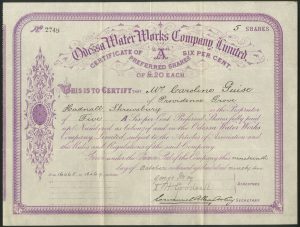 No 2749 5 SHARES
Odessa Water Works Company Limited.
CERTIFICATE OF "A" SIX PER CENT
PREFERRED SHARES
OF £20 EACH.
THIS IS TO CERTIFY that Mrs Caroline Guise
of Providence Grove
Hadnall Shrewsbury is the Proprietor
of Five A Six per Cent Preferred Shares fully paid
up Numbered as below in the Odessa Water Works
Company Limited subject to the Articles of Association and
the Rules and Regulations of the said Company.
Given under the Common Seal of the Company this nineteenth
day of October one thousand eight hundred and ninety
DIRECTORS
SECRETARY